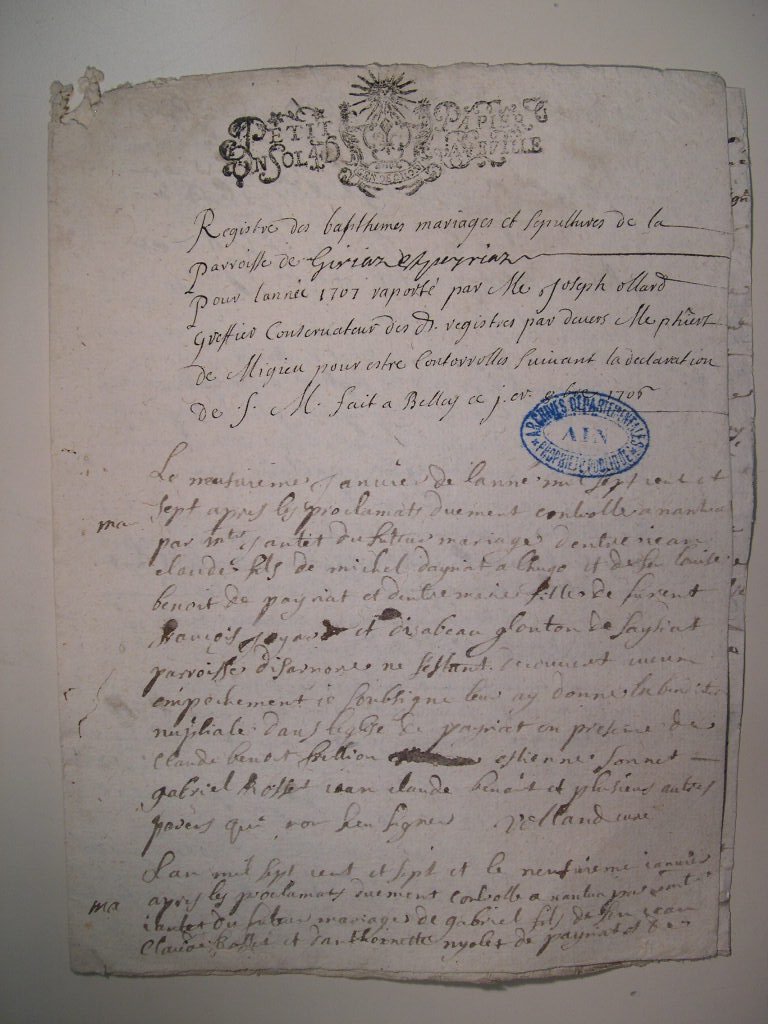 PETIT PAPIER
UN SOL 4 D LA FEUILLE
GEN DE BOURG
Registre des bapthemes mariages et sepultures de la
parroisse de Giriaz et peyriaz
pour lannée 1707 raporté par Me Joseph ollard
Greffier Conservateur des d. registres par devers Me
de Migieu pour estre Contorrolles suivant la declaration
de S. M. fait a Belley ce j.er 1706
ARCHIVES DEPARTEMENTALES
AIN
PROPRIETE PUBLIQUE
Le neufvieme Janvier de lanne mil sept cent et
ma sept apres les proclamats duement controlle a nantua
par Jantet du futeur mariage dentre jean
claude fils de michel et de feu louise
benoit de payriat et dentre marie fille de
françois et disabeau glouton de
parroisse ne sestant decouvert aucun
empechement je soubsigne leur ay donne la benite
nuptiale dans leglise de payriat en presence de
claude benoit estienne sonnet
gabriel Rosset jean claude benoit et plusieurs autres
qui non sceu signer Volland cure
Lan mil sept cent et sept et le neufvieme janvier
ma apres les proclamats duement controlle a nantua par
jantet du futeur mariage de gabriel fils de feu jean
Claude et danthoinette nyolet de payriat et